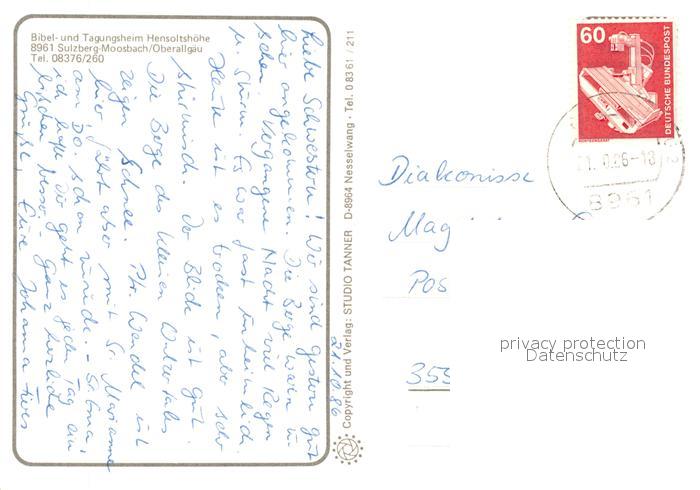 Bibel- und Tagungsheim Hensoltshöhe
8961 Sulzberg-Moosbach/Oberallgäu
Tel. 08376/260
21.10.86
Liebe Schwestern! Wir sind gestern gut
hier angekommen. Die Berge waren zu
sehen. Vergangene Nacht viel Regen
u. Sturm. Es war fast unheimlich.
Heute ist es trocken, aber sehr
stürmisch. Der Blick ist gut.
Die Berge des kleinen Walsertales
zeigen Schnee. Ptr. Wendel ist
hier, fährt aber mit Sr. Marianne
am Do. schon zurück. -
ich hoffe, Dir geht es jeden Tag ein
bischen besser. Ganz herzliche
Grüße, Eure Johanna
Copyright und Verlag: STUDIO TANNER D-8964 Nesselwang · Tel. 08361/211
60
DEUTSCHE BUNDESPOST
8961
Diakonisse
Mag
Pos
355
privacy protection
Datenschutz